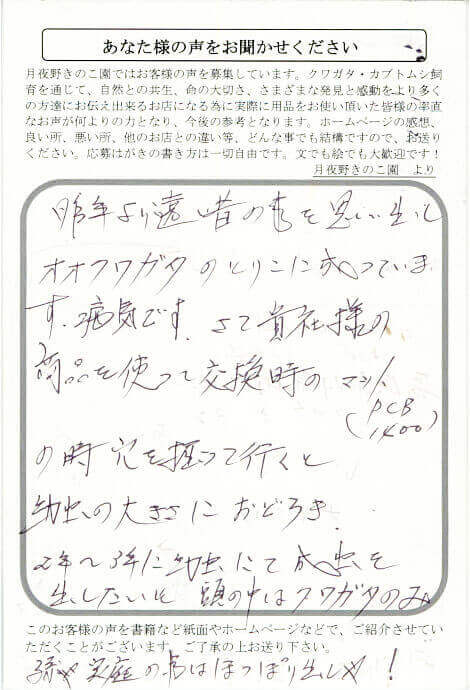 あなた様の声をお聞かせください
月夜野きのこ園ではお客様の声を募集しています。クワガタ・カブトムシ飼
育を通じて、自然との共生、命の大切さ、さまざまな発見と感動をより多く
の方達にお伝え出来るお店になる為に実際に用品をお使い頂いた皆様の率直
なお声が何よりの力となり、今後の参考となります。ホームページの感想、
良い所、悪い所、他のお店との違い等、どんな事でも結構ですので、お送り
ください。応募はがきの書き方は一切自由です。文でも絵でも大歓迎です！
月夜野きのこ園　より
昨年より遠い昔の事を思い出し
オオクワガタのとりこに成っていま
す。病気です。さて貴社様の
商品を使って交換時のマット
(PCB
1400)
の時穴を掘って行くと
幼虫の大きさにおどろき、
2年〜3年に幼虫にて成虫を
出したいと 頭の中はクワガタのみ
このお客様の声を書籍など紙面やホームページなどで、ご紹介させてい
ただくことがございます。ご了承の上お送り下さい。
家庭の事はほっぽり出し !